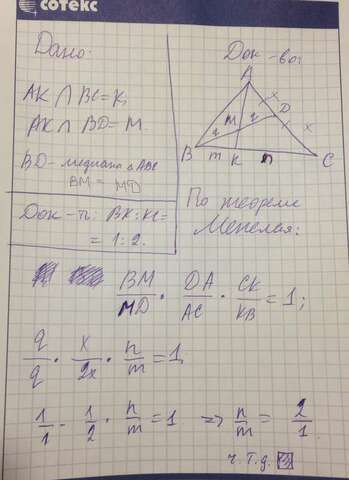 СОТЕКС
Дано:
AK ∩ BC = K,
AK ∩ BD = M.
BD - медиана △ ABC
BM = MD
Док-ть: BK:KC =
= 1:2.
Док-во:
A
x
D
x
M
q
q
B
m
K
n
C
По теореме
Менелая:
BM/MD · DA/AC · CK/KB = 1;
q/q · x/2x · n/m = 1;
1/1 · 1/2 · n/m = 1 => n/m = 2/1
ч.т.д.